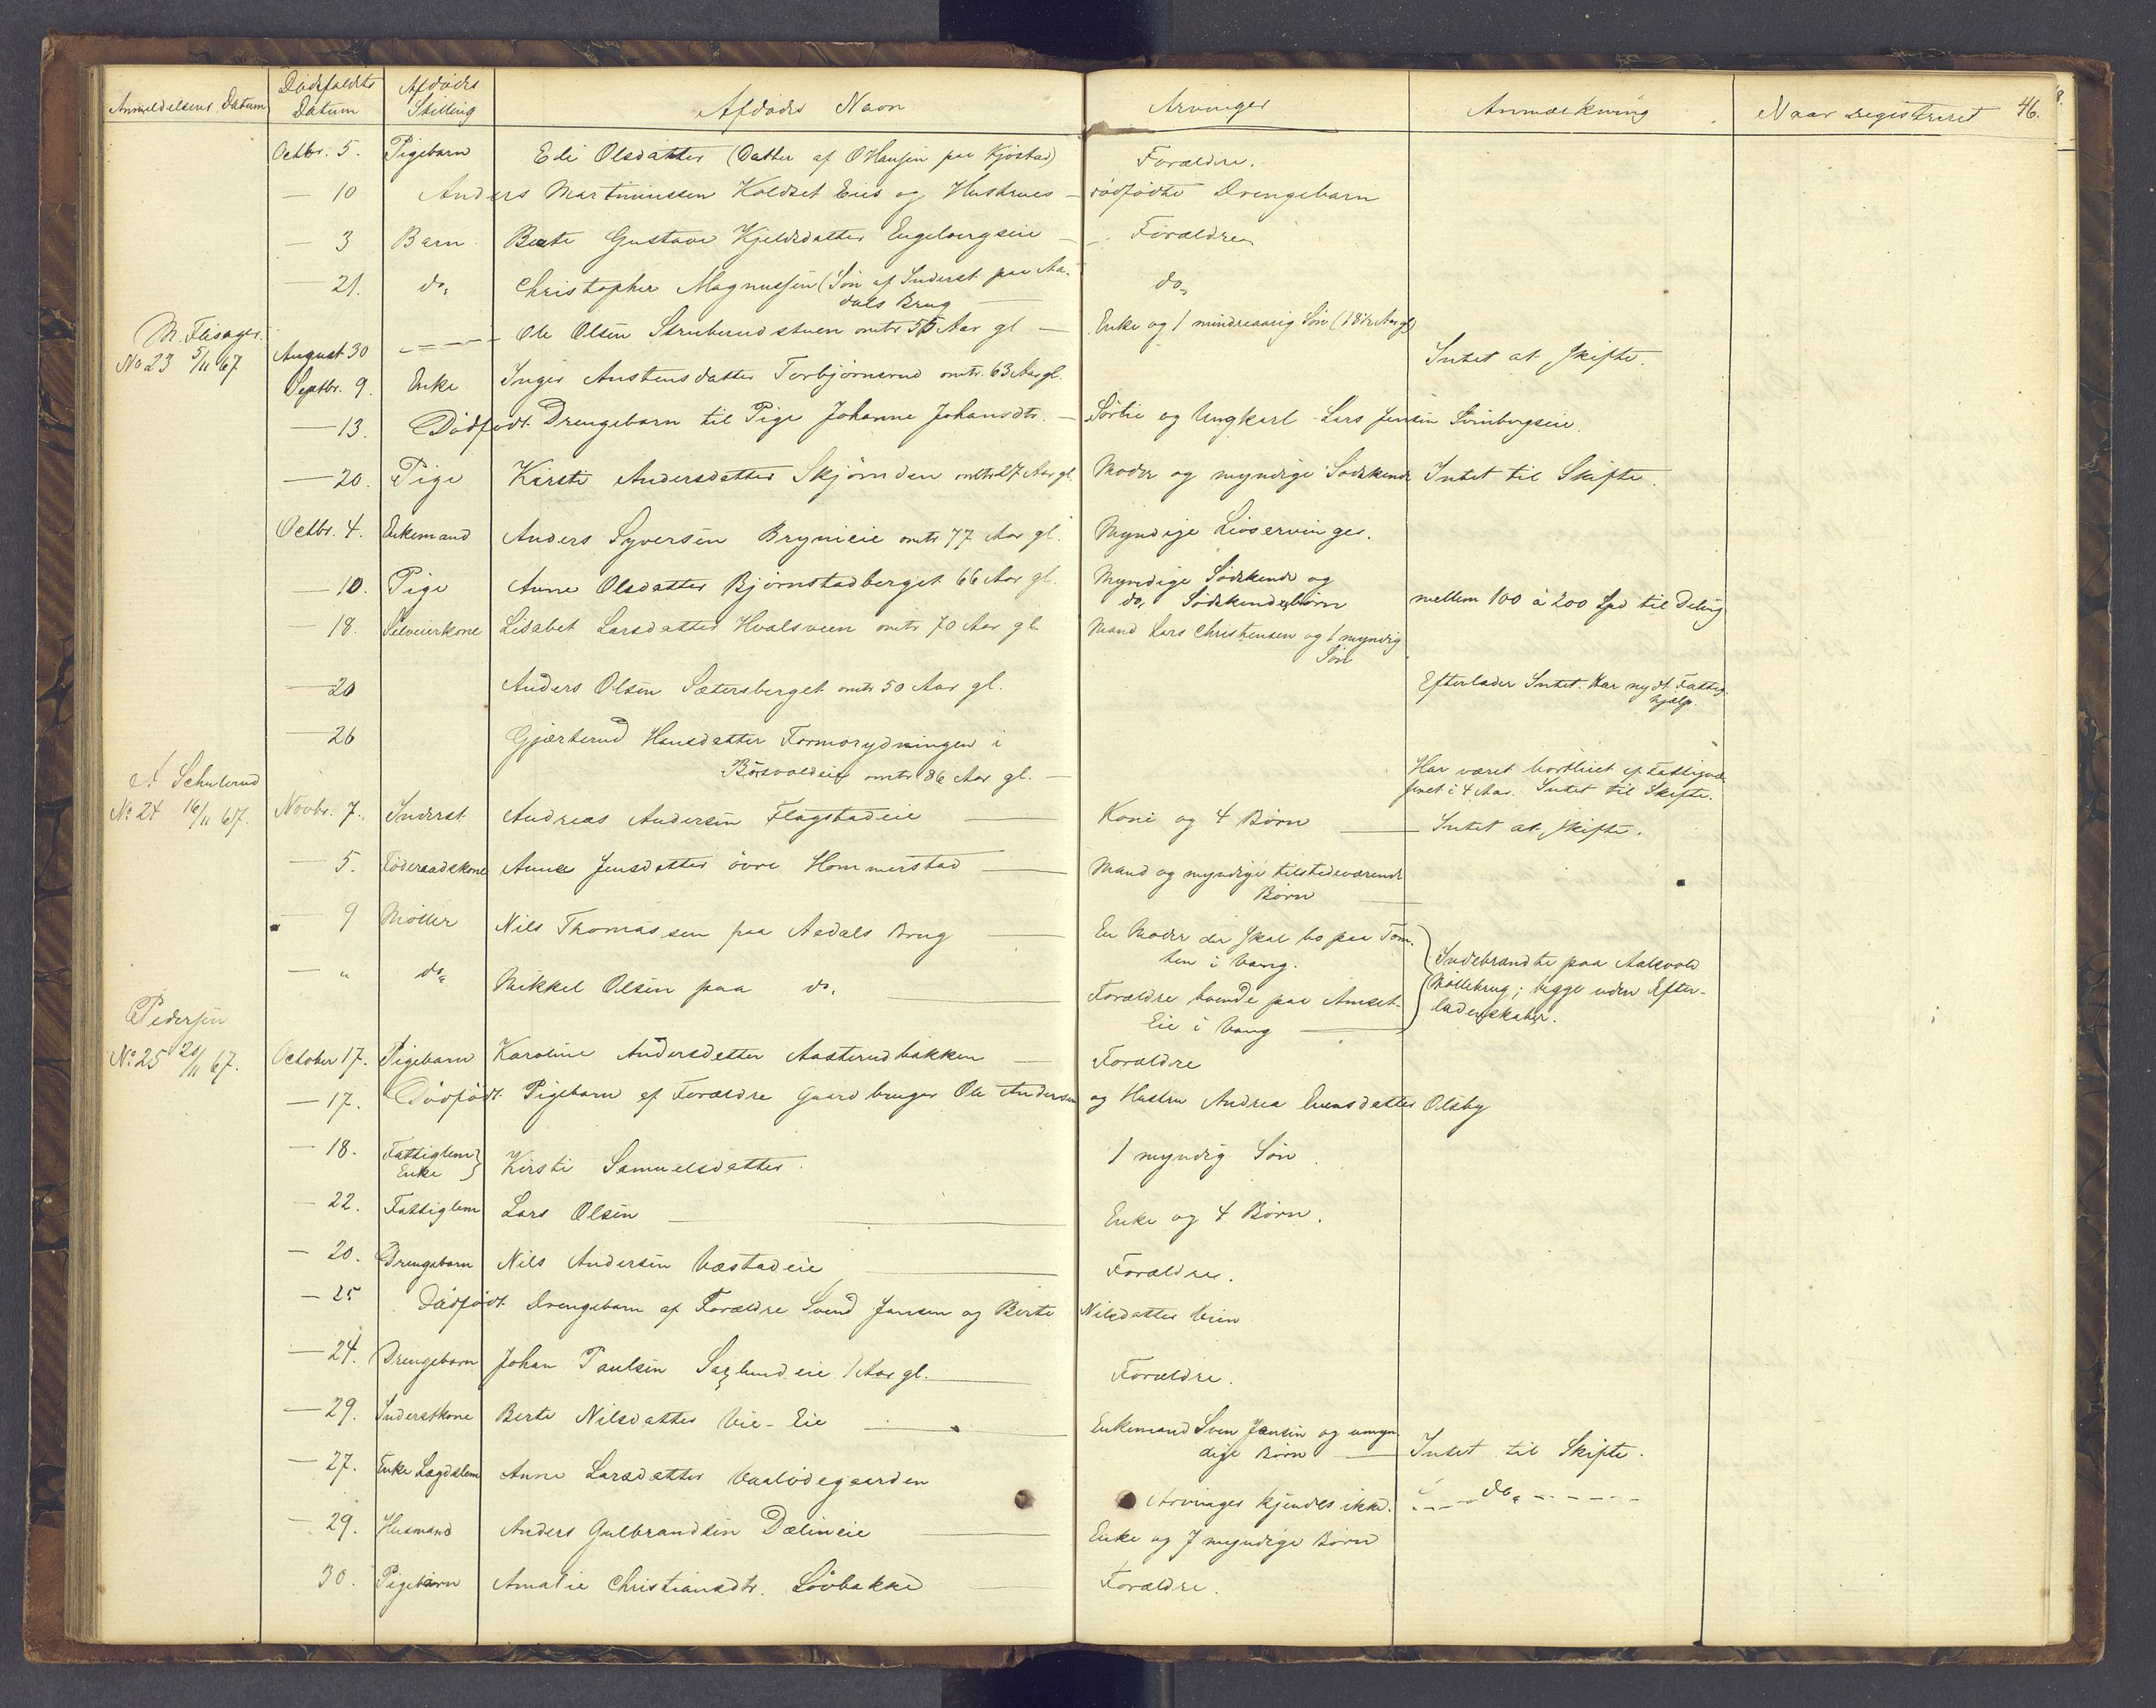 Anmeldelsens Datum Dødsfaldets Datum Afdødes Stilling Afdødes Navn Arvinger Anmærkning Naar registreret 46.
Octbr. 5. Pigebarn Edi Olsdatter (Datter af O Hansen paa Kjøstad) Forældre.
— 10 Anders Martinussen Koldset Eies og Hustrues — dødfødte Drengebarn
— 3 Barn Beate Gustave Kjeldsdatter Engelbergseie — Forældre
— 21. do. Christopher Magnussen (Søn af Inderst paa Aa-
dals Brug — do.
M. Flisager
No 23 5/11 67 August 30 — Ole Olsen Struberudstuen omtr 55 Aar gl — Enke og 1 mindreaarig Søn (18½ Aar gl)
Intet at skifte.
Septbr. 9. Enke Inger Austensdatter Torbjørnsrud omtr. 63 Aar gl.
— 13. Dødfødt Drengebarn til Pige Johanne Johansdtr. — Sørlie og Ungkarl Lars Jensen Svinbergseie.
— 20. Pige Kirsti Andersdatter Skjømden omtr 27 Aar gl. Moder og myndige Sødskende Intet til Skifte.
Octbr. 4. Enkemand Anders Syversen Brynieie omtr 77 Aar gl. Myndige Livsarvinger.
— 10. Pige Anne Olsdatter Bjørnstadberget 66 Aar gl. Myndige Sødskende og
do. Sødskendebørn mellem 100 à 200 Spd til Deling
— 18. Selveierkone Lisabet Larsdatter Hvalsveen omtr 70 Aar gl. Mand Lars Christensen og 1 myndig
Søn
— 20 Anders Olsen Sætersberget omtr 50 Aar gl. Efterlader Intet. Har nydt Fattig-
hjælp.
— 26 Gjærterud Hansdatter Formorydningen i
Børsvoldeie omtr 86 Aar gl. — Har været bortliciet af Fattigvæ-
senet i 4 Aar. Intet til Skifte.
A. Schulerud
No 24 16/11 67. Novbr. 7. Inderst Andreas Andersen Flagstadeie — Kone og 4 Børn — Intet at skifte.
— 5. Føderaadskone Anne Jensdatter øvre Hommerstad — Mand og myndige tilstedeværende
Børn —
— 9 Møller Nils Thomassen paa Aadals Brug — En Moder der skal bo paa Tom-
ten i Vang. Indebrændte paa Aalsvold
— " do. Mikkel Olsen paa do. — Forældre boende paa Amset
Eie i Vang — Møllebrug; begge uden Efter-
ladenskaber.
Pedersen
No 25 20/11 67. October 17. Pigebarn Karoline Andersdatter Aasterudbakken — Forældre
— 17. Dødfødt Pigebarn af Forældre Gaardbruger Ole Andersen og Hustru Andrea Evensdatter Olsby
— 18. Fattiglem
Enke Kirsti Samuelsdatter. 1 myndig Søn
— 22. Fattiglem Lars Olsen — Enke og 4 Børn.
— 20. Drengebarn Nils Andersen Væstadeie — Forældre.
— 25 Dødfødt Drengebarn af Forældre Svend Jansen og Berte Nilsdatter Vien
— 24. Drengebarn Johan Paulsen Saglundeie 1 Aar gl. — Forældre.
— 29. Inderstkone Berte Nilsdatter Vie-Eie — Enkemand Sven Jansen og umyn-
dige Børn — Intet til Skifte.
— 27. Enke Lægdslem Anne Larsdatter Vaalødegaarden Arvinger kjendes ikke. — do. —
— 29. Husmand Anders Gulbrandsen Dælineie — Enke og 7 myndige Børn
30. Pigebarn Amalie Christiansdtr. Løvbakke — Forældre.